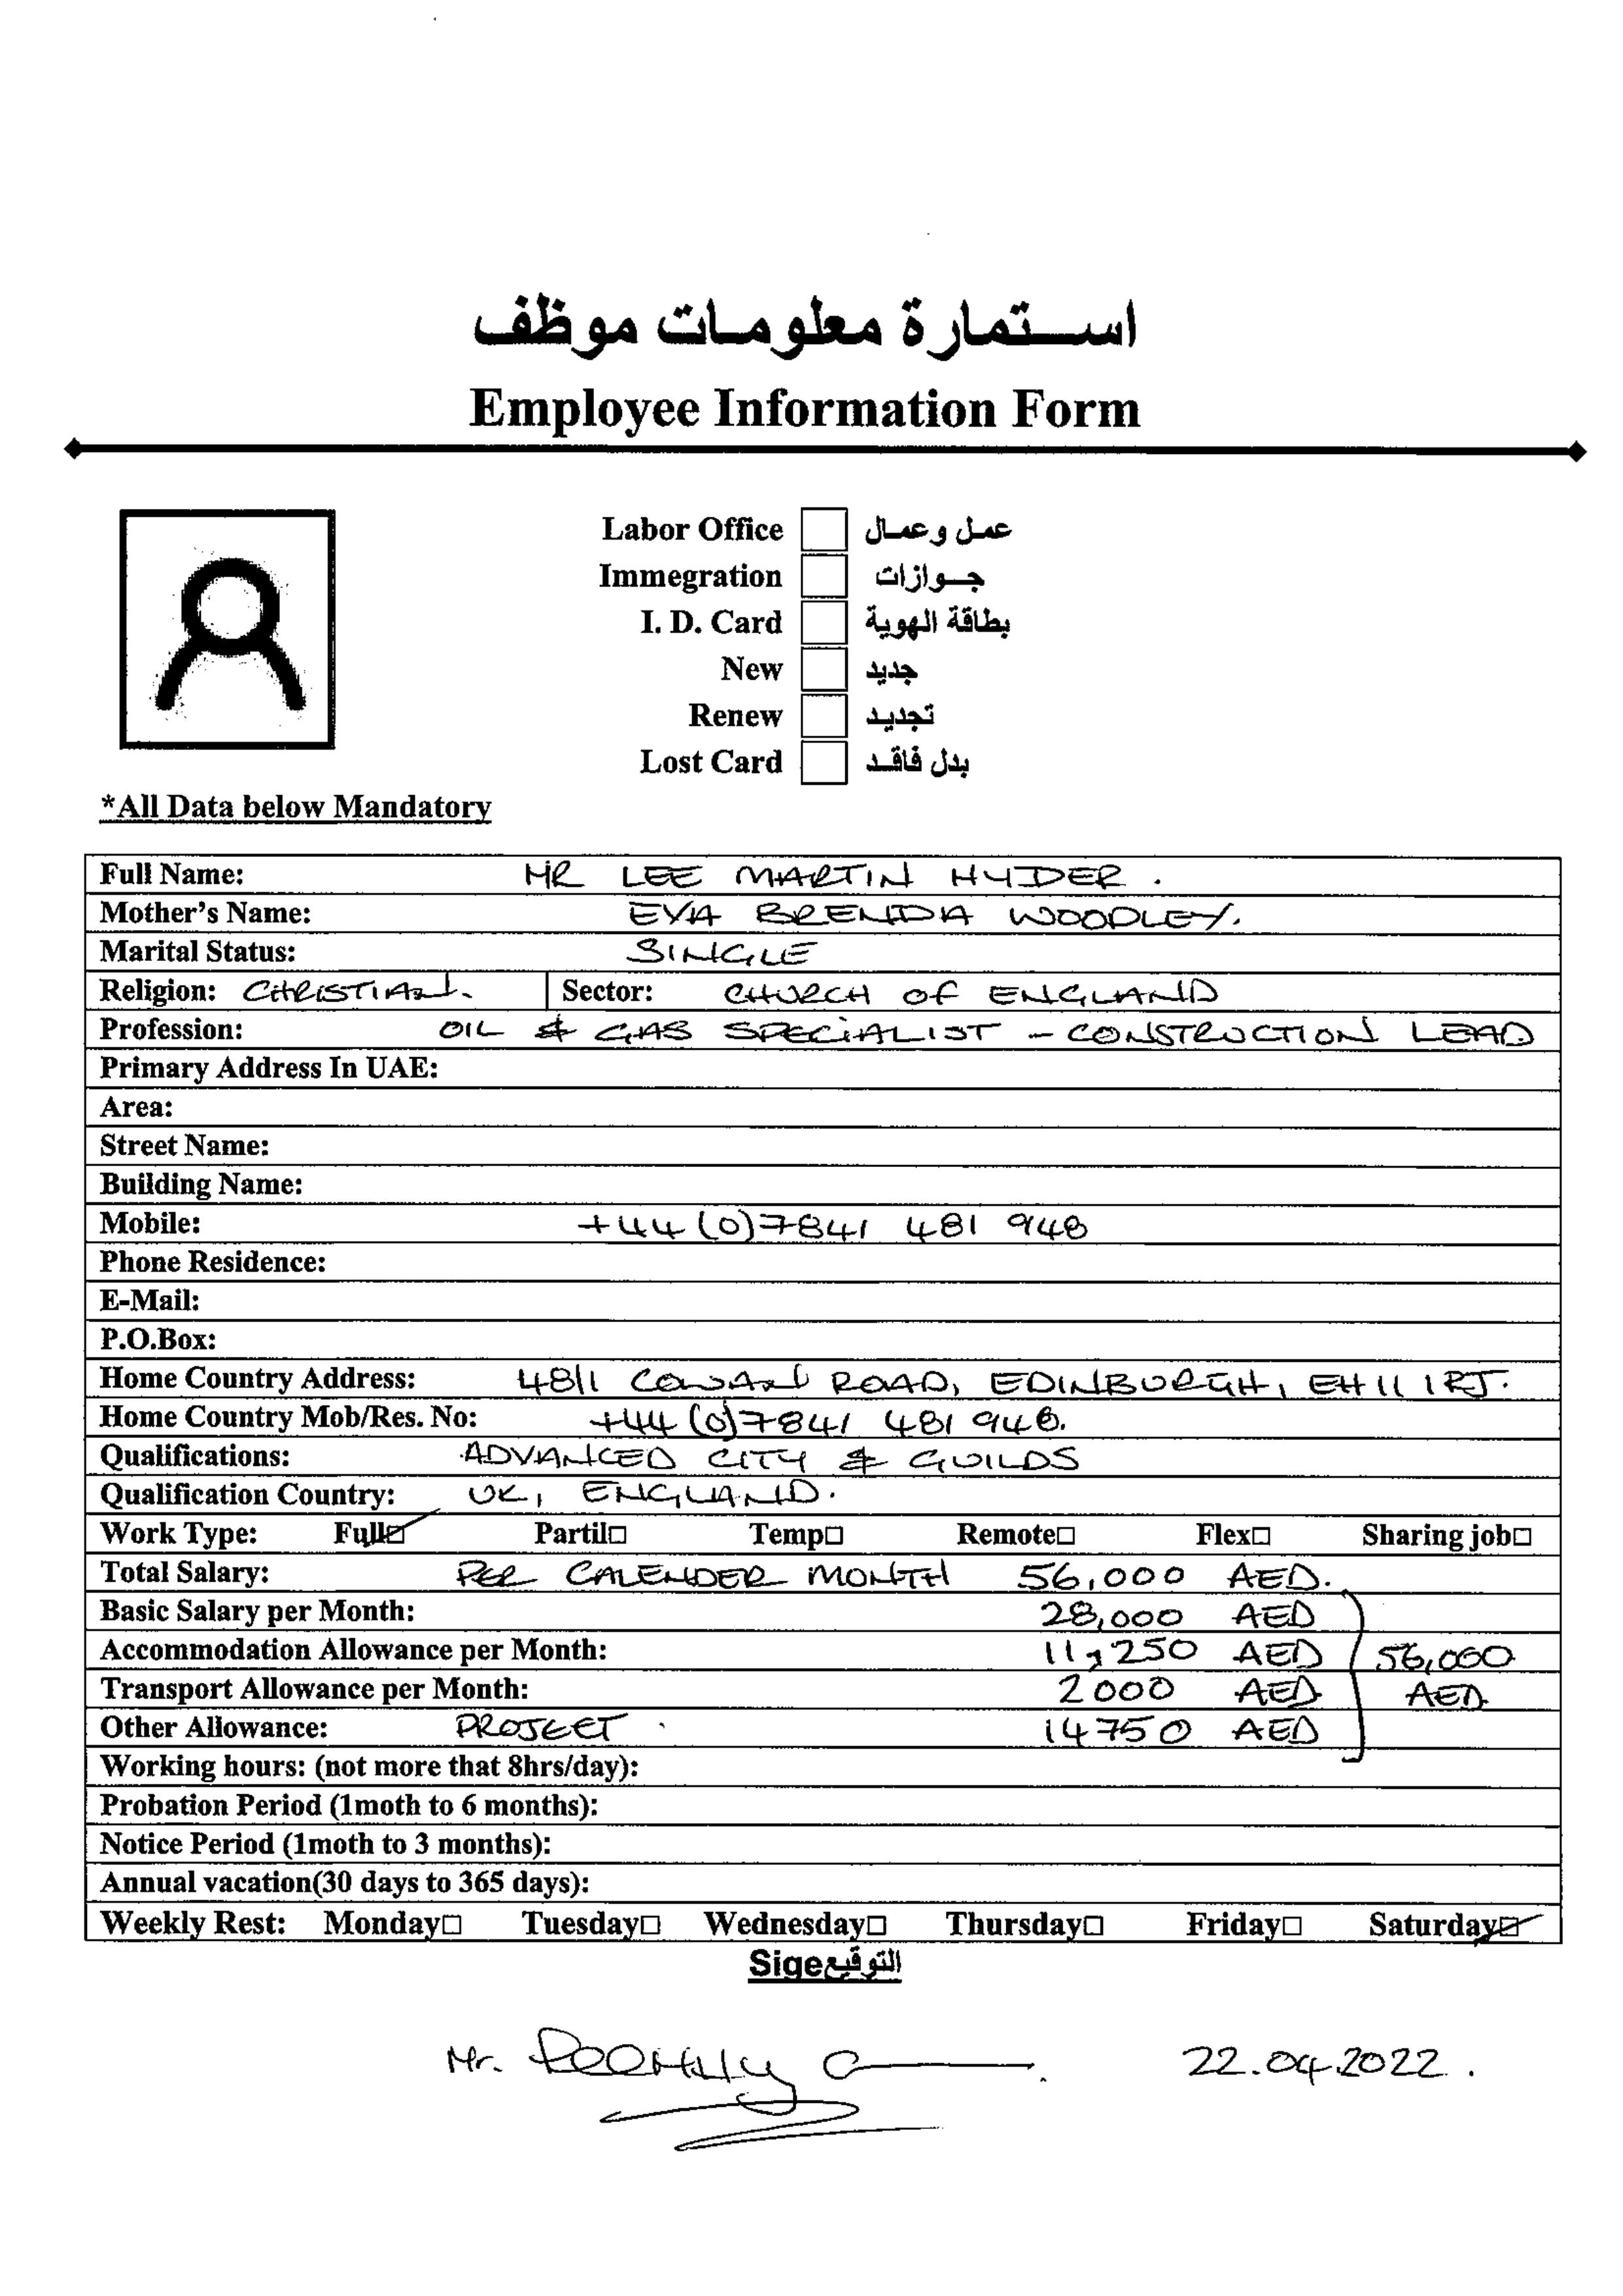 استمارة معلومات موظف
Employee Information Form
Labor Office عمل وعمال
Immegration جوازات
I. D. Card بطاقة الهوية
New جديد
Renew تجديد
Lost Card بدل فاقد
*All Data below Mandatory
Full Name: MR LEE MARTIN HYDER.
Mother's Name: EVA BRENDA WOODLEY.
Marital Status: SINGLE
Religion: CHRISTIAN. Sector: CHURCH OF ENGLAND
Profession: OIL & GAS SPECIALIST - CONSTRUCTION LEAD
Primary Address In UAE:
Area:
Street Name:
Building Name:
Mobile: +44(0)7841 481 948
Phone Residence:
E-Mail:
P.O.Box:
Home Country Address: 48/1 COWAN ROAD, EDINBURGH, EH11 1RJ.
Home Country Mob/Res. No: +44(0)7841 481 948.
Qualifications: ADVANCED CITY & GUILDS
Qualification Country: UK, ENGLAND.
Work Type: Full Partil Temp Remote Flex Sharing job
Total Salary: PER CALENDER MONTH 56,000 AED.
Basic Salary per Month: 28,000 AED
Accommodation Allowance per Month: 11,250 AED 56,000
Transport Allowance per Month: 2000 AED AED
Other Allowance: PROJECT 14750 AED
Working hours: (not more that 8hrs/day):
Probation Period (1moth to 6 months):
Notice Period (1moth to 3 months):
Annual vacation(30 days to 365 days):
Weekly Rest: Monday Tuesday Wednesday Thursday Friday Saturday
Sige التوقيع
Mr. 22.04.2022.